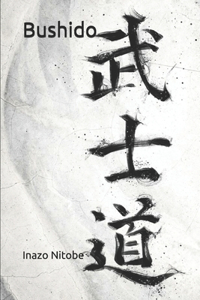 Bushido
武士道
Inazo Nitobe